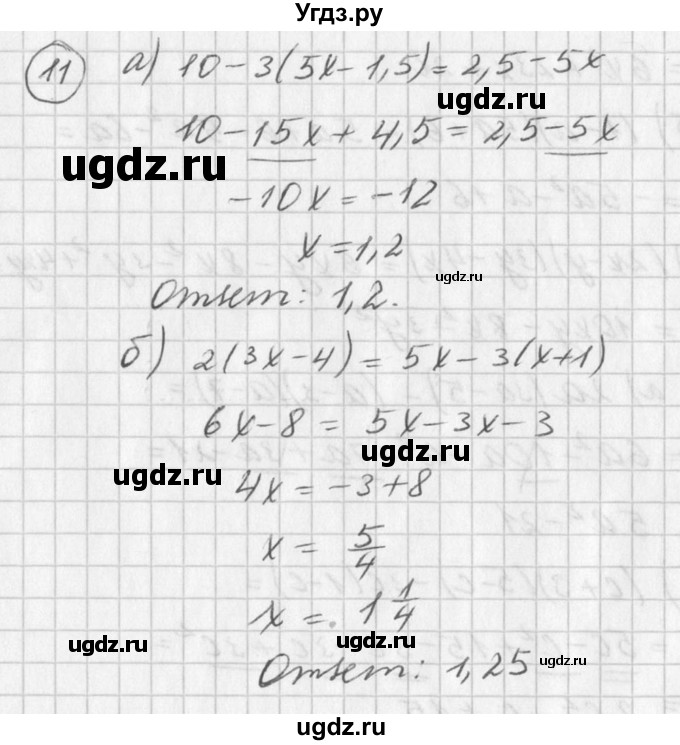 Угдз.ру
11 а) 10 - 3(5x - 1,5) = 2,5 - 5x
ugdz.ru
10 - 15x + 4,5 = 2,5 - 5x
ugdz.ru
-10x = -12
x = 1,2
ugdz.ru
Ответ: 1,2.
б) 2(3x - 4) = 5x - 3(x + 1)
6x - 8 = 5x - 3x - 3
ugdz.ru
ugdz.ru
4x = -3 + 8
x = 5/4
x = 1 1/4
ugdz.ru
ugdz.ru
Ответ: 1,25
ugdz.ru
ugdz.ru